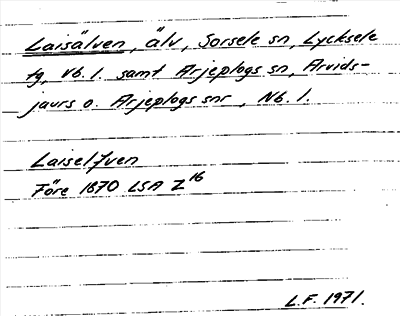 Laisälven, älv, Sorsele sn, Lycksele
tg, Vb. l. samt Arjeplogs sn, Arvids-
jaurs o. Arjeplogs snr, Nb. l.
Laiselfven
Före 1670 LSA Z16
L.F. 1971.